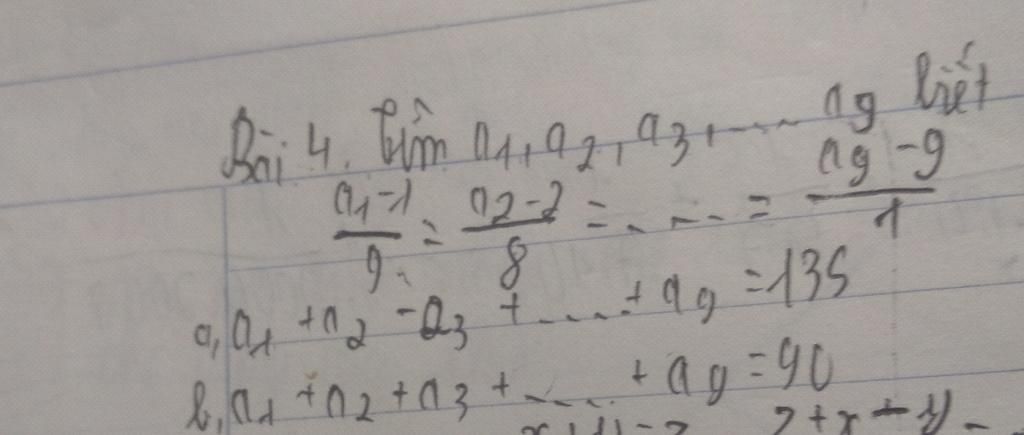 Bài 4. Tìm a1, a2, a3, .... a9 biết
(a1-1)/9 = (a2-2)/8 = ..... = (a9-9)/1
a, a1 + a2 - a3 + ..... + a9 = 135
b, a1 + a2 + a3 + ..... + a9 = 90